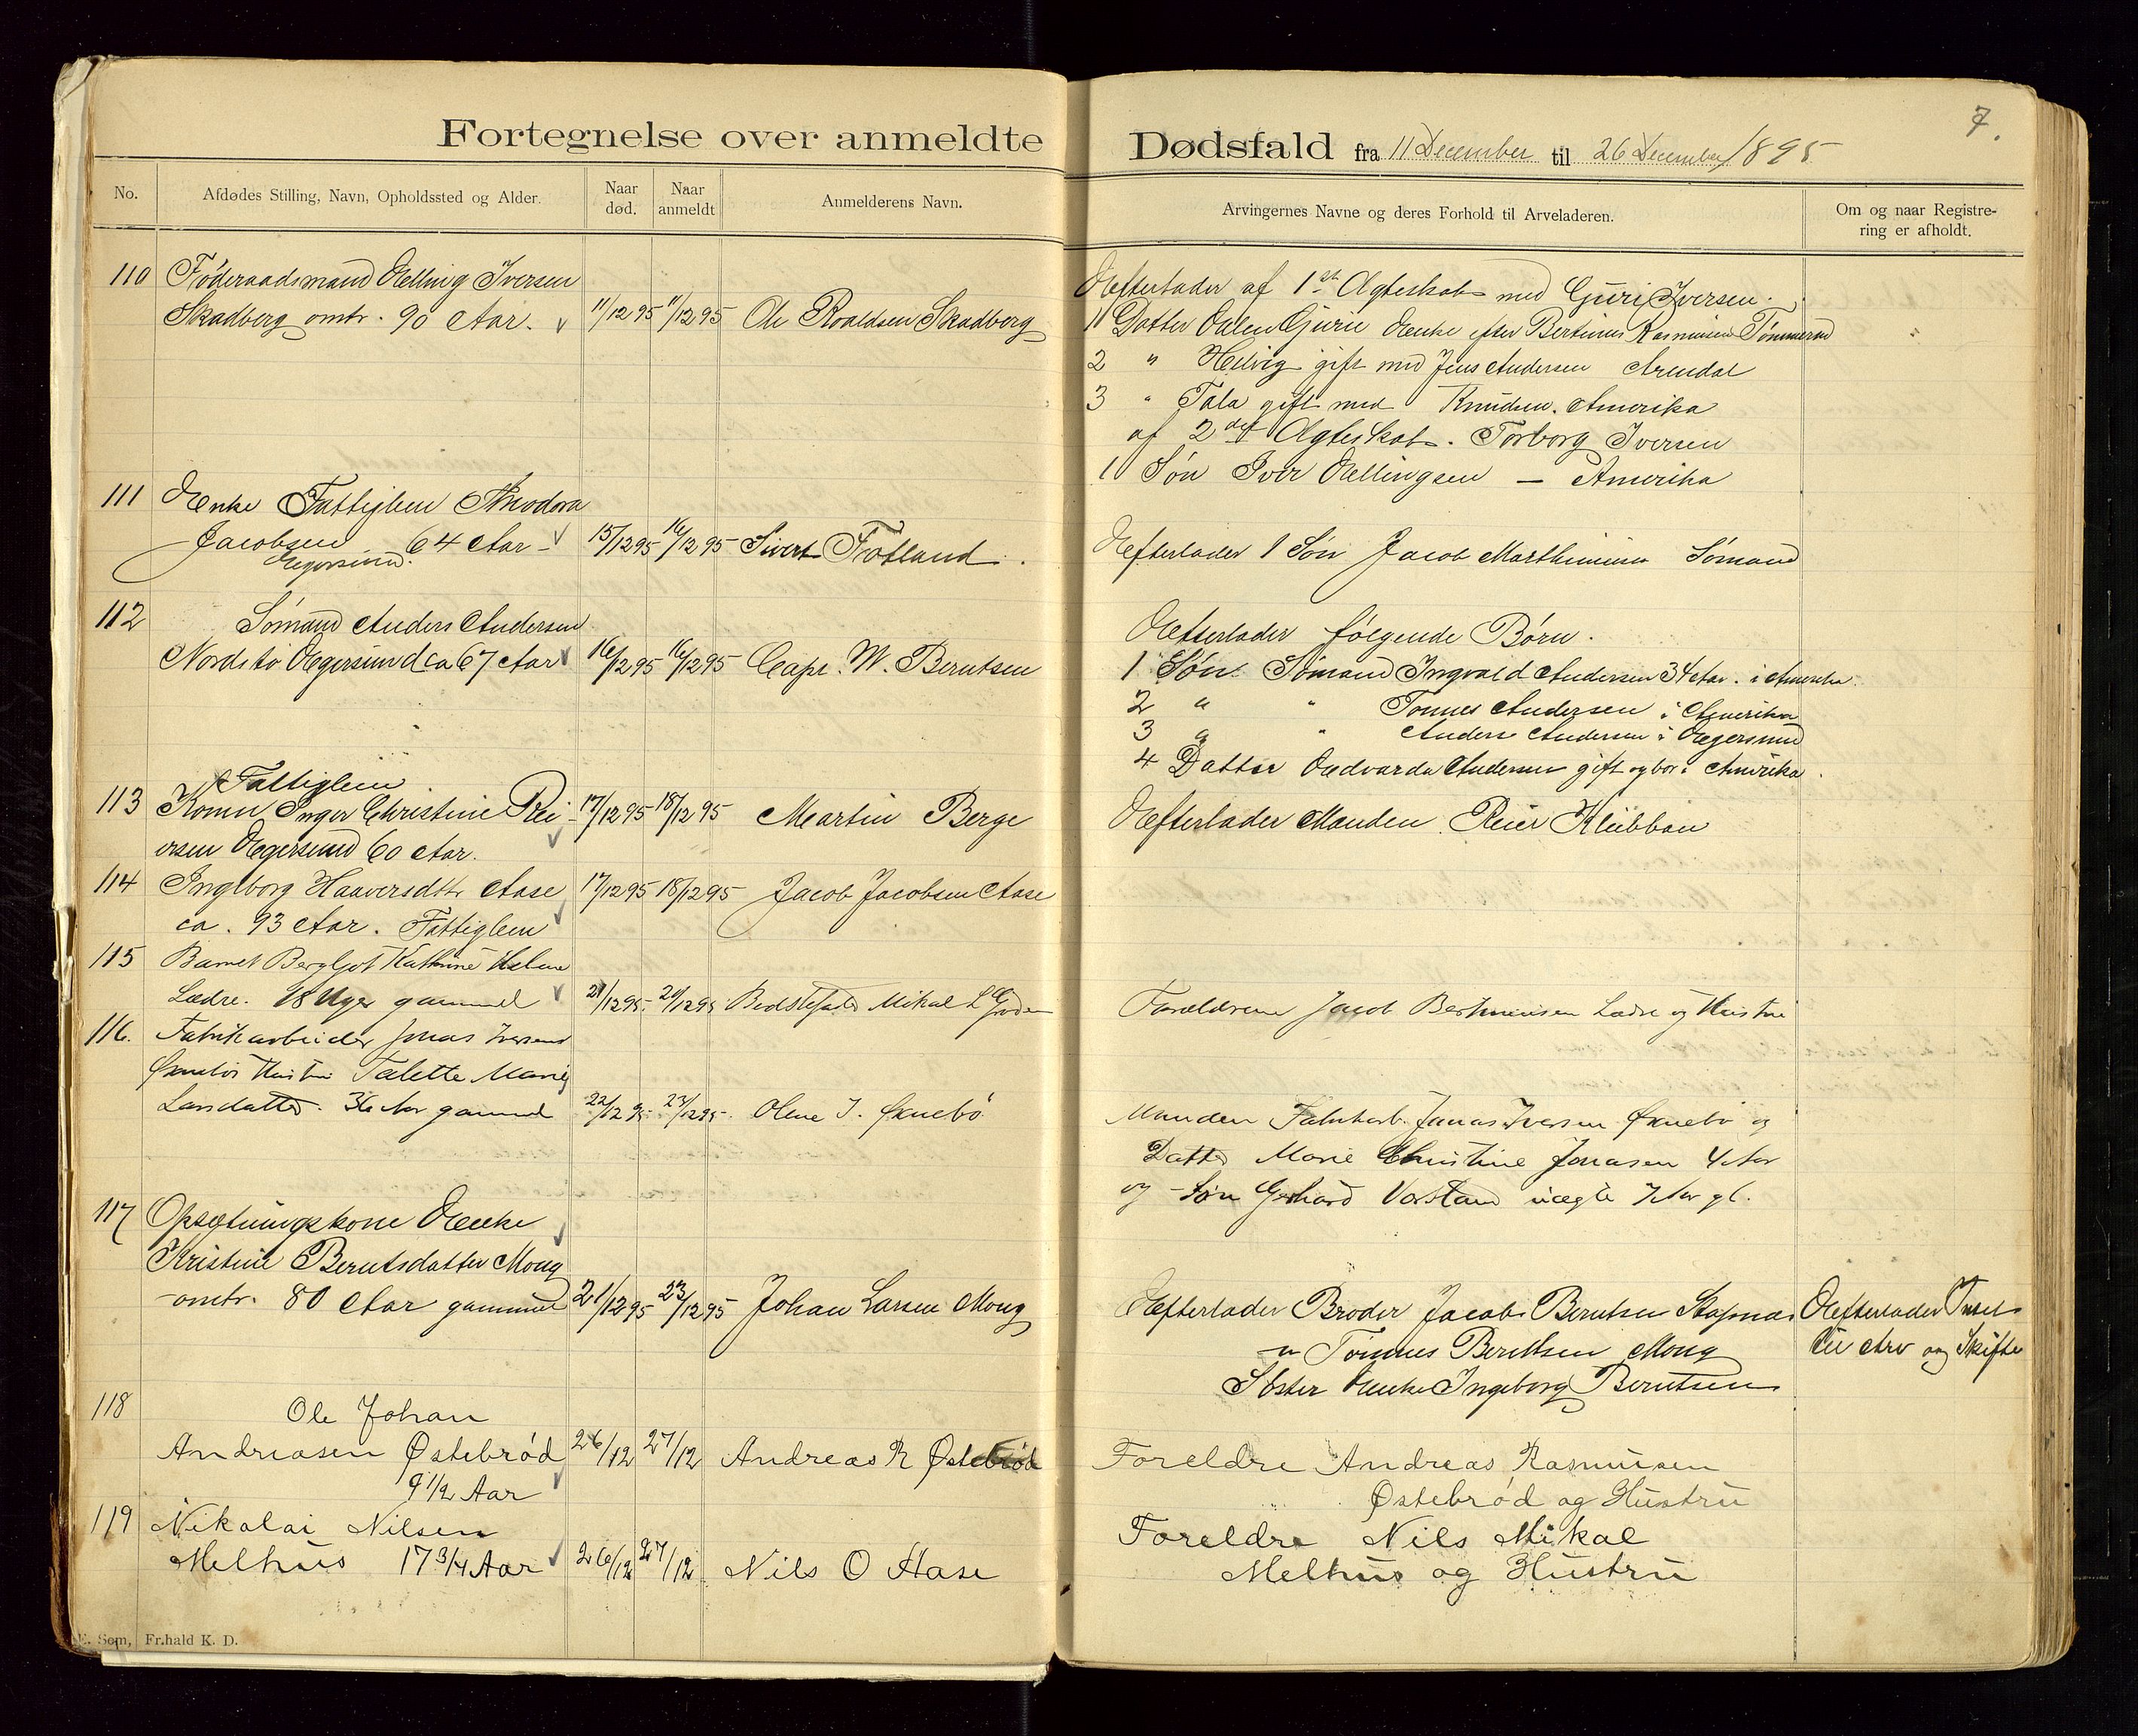 Fortegnelse over anmeldte Dødsfald fra 11 December til 26 December 1895
7.
No.
Afdødes Stilling, Navn, Opholdssted og Alder.
Naar død.
Naar anmeldt
Anmelderens Navn.
Arvingernes Navne og deres Forhold til Arveladeren.
Om og naar Registre-
ring er afholdt.
110 Föderaadsmand Elling Iversen
Skadberg omtr. 90 Aar. 11/12 95 11/12 95 Ole Roaldsen Skadberg
Efterlader af 1ste Ægteskab med Guri Iversen.
1 Datter Malen Gurie Enke efter Bertinius Rasmussen Tømmeraa
2 " Helvig gift med Jens Andersen Arendal
3 " Tala gift med Knudsen. Amerika
af 2det Ægteskab. Torborg Iversen
1 Søn Iver Ellingsen — Amerika
111 Enke Fattiglem Theodora
Jacobsen 64 Aar - 15/12 95 16/12 95 Sivert Trotland.
Egersund.
Efterlader 1 Søn Jacob Marthinius Sømand
112 Sömand Anders Andersen
Nordstö Egersund ca 67 Aar 16/12 95 16/12 95 Capt. M. Berntsen
Efterlader følgende Børn.
1 Søn. Sømand Ingvald Andersen 34 Aar. i Amerika.
2 " " Tonnes Andersen i Amerika
3 " " Anders Andersen i Egersund
4 Datter Edvarda Andersen gift og bor i Amerika.
Fattiglem
113 Konen Inger Christine Rei- 17/12 95 18/12 95 Martin Berge
ersen Egersund 60 Aar.
Efterlader Manden Reier Klubban
114 Ingeborg Haaversdtr Aase 17/12 95 18/12 95 Jacob Jacobsen Aase
ca. 93 Aar. Fattiglem
115 Barnet Bergljot Kathrine Helene
Lædre. 18 Uger gammel 21/12 95. 21/12 95 Bedstefader Mikal L Gyde
Forældrene Jacob Berthinussen Lædre og Hustru
116. Fabrikarbeider Jonas Iversens
Øxnebös Hustru Talette Marie
Larsdatter. 36 Aar gammel 22/12 95. 23/12 95. Olene J. Øxnebö
Manden Fabrikarb. Jonas Iversen Øxnebö og
Datter Marie Christine Jonasen 4 Aar
og Søn Gerhard Vorstand uægte 7 Aar gl.
117 Opsætningskone Enke
Kristine Berntsdatter Mong
omtr. 80 Aar gammel 21/12 95 23/12 95 Johan Larsen Mong
Efterlader Broder Jacob Berntsen Stapnes
" Tönnes Berntsen Mong
Søster Enke Ingeborg Berntsen
Efterlader Intet
til Arv og Skifte
118 Ole Johan
Andreasen Østebröd 26/12 27/12 Andreas R Østebröd
9 1/2 Aar
Foreldre Andreas Rasmusen
Østebröd og Hustru
119 Nikolai Nilsen
Melhus 17 3/4 Aar 26/12 27/12 Nils O Aase
Foreldre Nils Mikal
Melhus og Hustru
E. Sem, Fr.hald K. D.